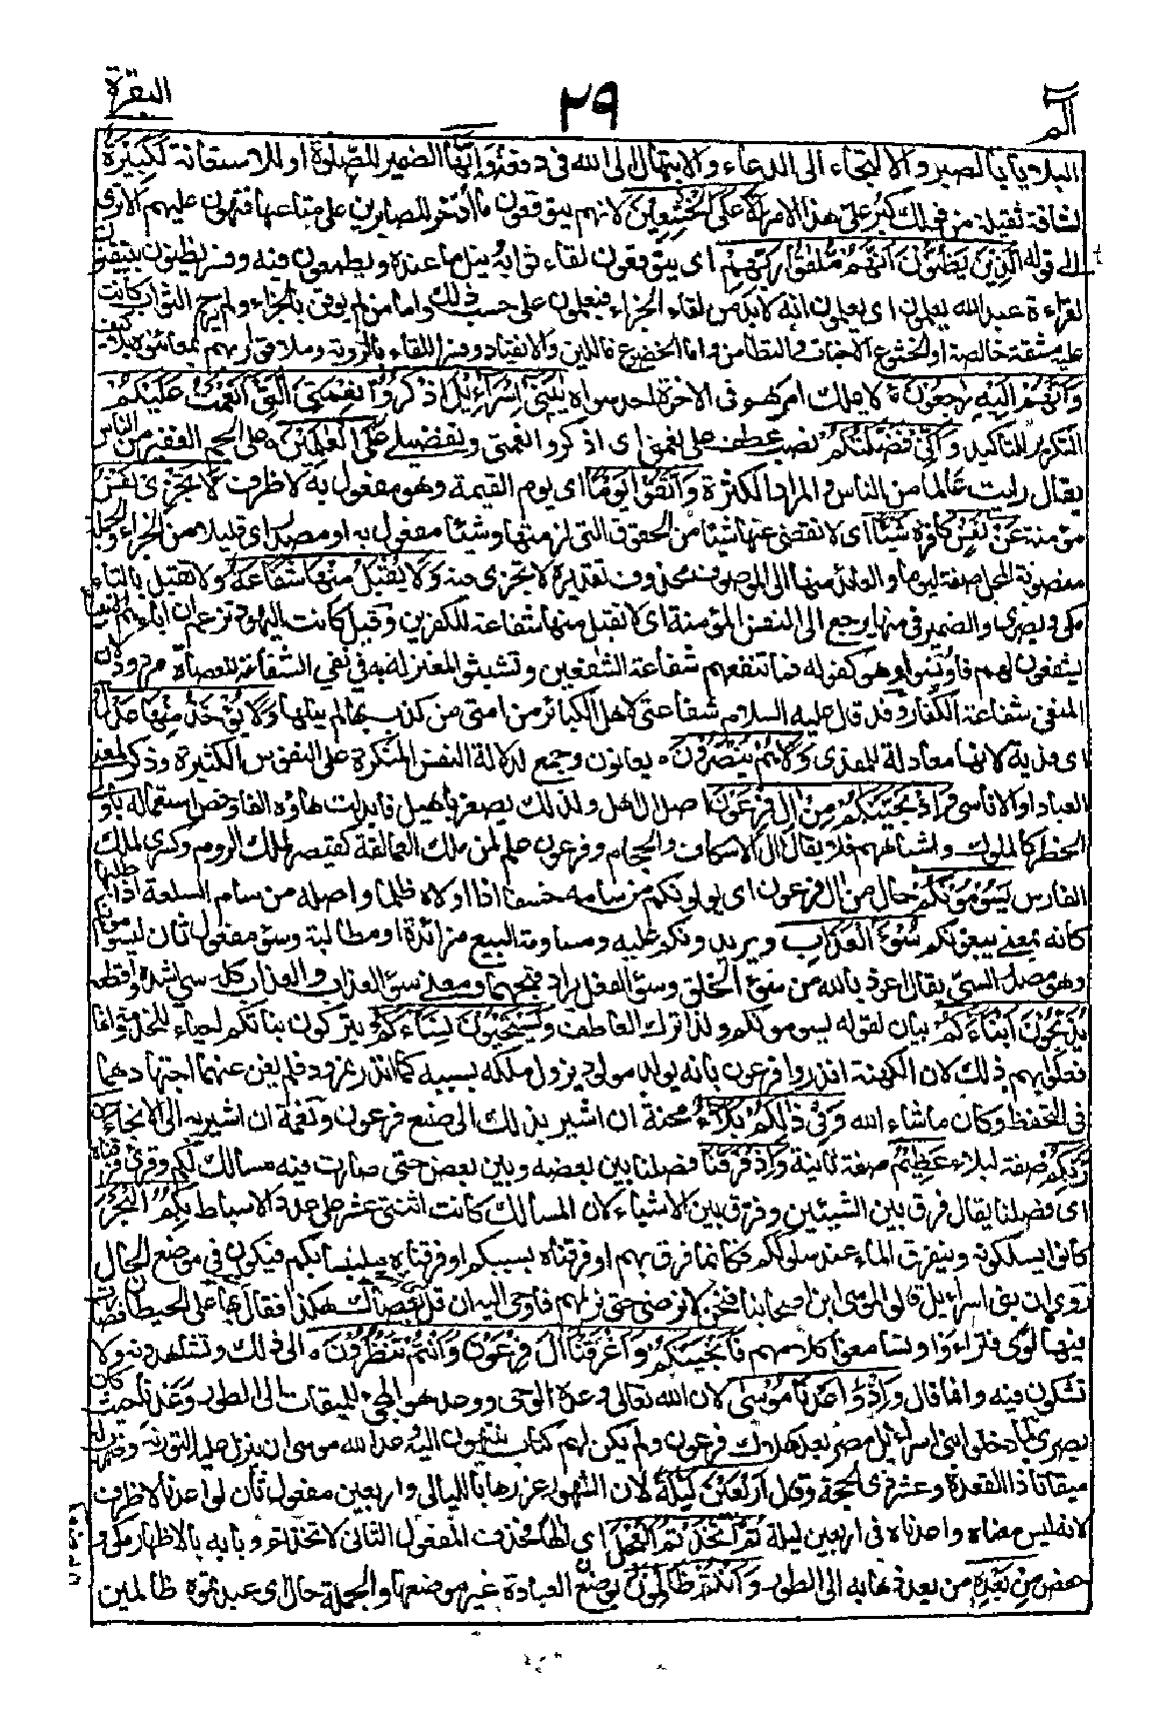 الم
٢٩
البقرة
البلايا بالصبر والالتجاء الى الدعاء والابتهال الى الله فى دفعه وَاِنَّهَا الضمير للصلوة او للاستعانة لَكَبِيْرَةٌ
لشاقة ثقيلة من قولك كبر علىّ هذا الامر اِلَّا عَلَى الْخٰشِعِيْنَ لانهم يتوقعون ما ادّخر للصابرين على متاعبها فتهون عليهم الا ترى
الى قوله الَّذِيْنَ يَظُنُّوْنَ اَنَّهُمْ مُّلٰقُوْا رَبِّهِمْ اى يتوقعون لقاء ثوابه ونيل ما عنده ويطمعون فيه وفسر يظنون بيتيقنون
لقراءة عبد الله يعلمون اى يعلمون انه لا بد من لقاء الجزاء فيعملون على حسب ذلك واما من لم يوقن بالجزاء ولم يرج الثواب كانت
عليه مشقة خالصة والخشوع الاخبات والتطامن واما الخضوع فاللين والانقياد وفسر اللقاء بالرؤية وملاقوا ربهم بمعاينوه بلا كيف
وَاَنَّهُمْ اِلَيْهِ رٰجِعُوْنَ لا يملك امرهم فى الاخرة احد سواه يٰبَنِىْۤ اِسْرَآءِيْلَ اذْكُرُوْا نِعْمَتِىَ الَّتِىْۤ اَنْعَمْتُ عَلَيْكُمْ
التكرير للتاكيد وَاَنِّىْ فَضَّلْتُكُمْ نصب عطف على نعمتى اى اذكروا نعمتى وتفضيلى عَلَى الْعٰلَمِيْنَ على الجم الغفير من الناس
يقال رايت عالما من الناس والمراد الكثرة وَاتَّقُوْا يَوْمًا اى يوم القيمة وهو مفعول به لا ظرف لَا تَجْزِىْ نَفْسٌ
مؤمنة عَنْ نَفْسٍ كافرة شَيْئًا اى لا تقضى عنها شيئا من الحقوق التى لزمتها وشيئا مفعول به او مصدر اى قليلا من الجزاء والجملة
منصوبة المحل صفة ليوما والعائد منها الى الموصوف محذوف تقديره لا تجزى فيه وَلَا يُقْبَلُ مِنْهَا شَفَاعَةٌ ولا تقبل بالتاء
مكى وبصرى والضمير فى منها يرجع الى النفس المؤمنة اى لا تقبل منها شفاعة للكفرين وقيل كانت اليهود تزعم ان اباءهم الانبياء
يشفعون لهم فاويسوا وهو كقوله فما تنفعهم شفاعة الشفعين وتشبث المعتزلة به فى نفى الشفاعة للعصاة مردود لان
المنفى شفاعة الكفار وقد قال عليه السلام شفاعتى لاهل الكبائر من امتى من كذب بها لم ينلها وَلَا يُؤْخَذُ مِنْهَا عَدْلٌ
اى فدية لانها معادلة للمفدى وَلَا هُمْ يُنْصَرُوْنَ يعانون وجمع لدلالة النفس المنكرة على النفوس الكثيرة وذكر لمعنى
العباد او الاناسى وَاِذْ نَجَّيْنٰكُمْ مِّنْ اٰلِ فِرْعَوْنَ اصل ال اهل ولذلك يصغر باهيل فابدلت هاؤه الفا وخص استعماله باولى
الخطر كالملوك واشباههم فلا يقال ال الاسكاف والحجام وفرعون علم لمن ملك العمالقة كقيصر لملك الروم وكسرى لملك
الفارس يَسُوْمُوْنَكُمْ حال من ال فرعون اى يولونكم من سامه خسفا اذا اولاه ظلما واصله من سام السلعة اذا طلبها
كانه بمعنى يبغونكم سُوْٓءَ الْعَذَابِ ويريدونكم عليه ومساومة البيع مزائدة او مطالبة وسوء مفعول ثان ليسومونكم
وهو مصدر السيئ يقال اعوذ بالله من سوء الخلق وسوء الفعل يراد قبحهما ومعنى سوء العذاب والعذاب كله سيئ اشده وافظعه
يُذَبِّحُوْنَ اَبْنَآءَكُمْ بيان لقوله يسومونكم ولذا ترك العاطف وَيَسْتَحْيُوْنَ نِسَآءَكُمْ يتركون بناتكم احياء للخدمة وانما
فعلوا بهم ذلك لان الكهنة انذروا فرعون بانه يولد مولود يزول ملكه بسببه كما انذر نمرود فلم يغن عنهما اجتهادهما
فى التحفظ وكان ما شاء الله وَفِىْ ذٰلِكُمْ بَلَآءٌ محنة ان اشير بذلك الى صنع فرعون ونعمة ان اشير به الى الانجاء مِنْ
رَّبِّكُمْ صفة لبلاء عَظِيْمٌ صفة ثانية وَاِذْ فَرَقْنَا فصلنا بين بعضه وبين بعض حتى صارت فيه مسالك لكم وقرئ فرّقنا
اى فصلنا يقال فرق بين الشيئين وفرّق بين الاشياء لان المسالك كانت اثنتى عشر على عدد الاسباط بِكُمُ الْبَحْرَ
كانوا يسلكونه ويتفرق الماء عند سلوكهم فكانما فرق بهم او فرقناه بسببكم او فرقناه ملتبسا بكم فيكون فى موضع الحال
روى ان بنى اسراءيل قالوا لموسى اين اصحابنا فنحن لا نرضى حتى نراهم فاوحى اليه ان قل بعصاك هكذا فقال بها على الحيطان فصارت
فيها كوى فتراءوا وتسامعوا كلامهم فَاَنْجَيْنٰكُمْ وَاَغْرَقْنَاۤ اٰلَ فِرْعَوْنَ وَاَنْتُمْ تَنْظُرُوْنَ الى ذلك وتشاهدونه ولا
تشكون فيه وانما قال وَاِذْ وٰعَدْنَا مُوْسٰى لان الله تعالى وعده الوحى ووعد هو المجئ للميقات الى الطور وعدنا حيث كان
بصرى لما دخل بنى اسراءيل مصر بعد هلاك فرعون ولم يكن لهم كتاب ينتهون اليه وعد الله موسى ان ينزل عليه التورىة وضرب له
ميقاتا ذا القعدة وعشر ذى الحجة وقال اَرْبَعِيْنَ لَيْلَةً لان الشهور غررها بالليالى واربعين مفعول ثان لواعدنا لا ظرف
لانه ليس معناه واعدناه فى اربعين ليلة ثُمَّ اتَّخَذْتُمُ الْعِجْلَ اى الها فحذف المفعول الثانى لاتخذتم وبابه بالاظهار مكى و
حفص مِنْ بَعْدِهٖ من بعد ذهابه الى الطور وَاَنْتُمْ ظٰلِمُوْنَ اى بوضع العبادة غير موضعها والجملة حال اى عبدتموه ظالمين